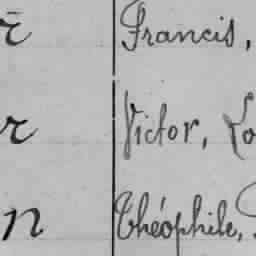 r Francis,
r Victor, Lo
n Théophile,